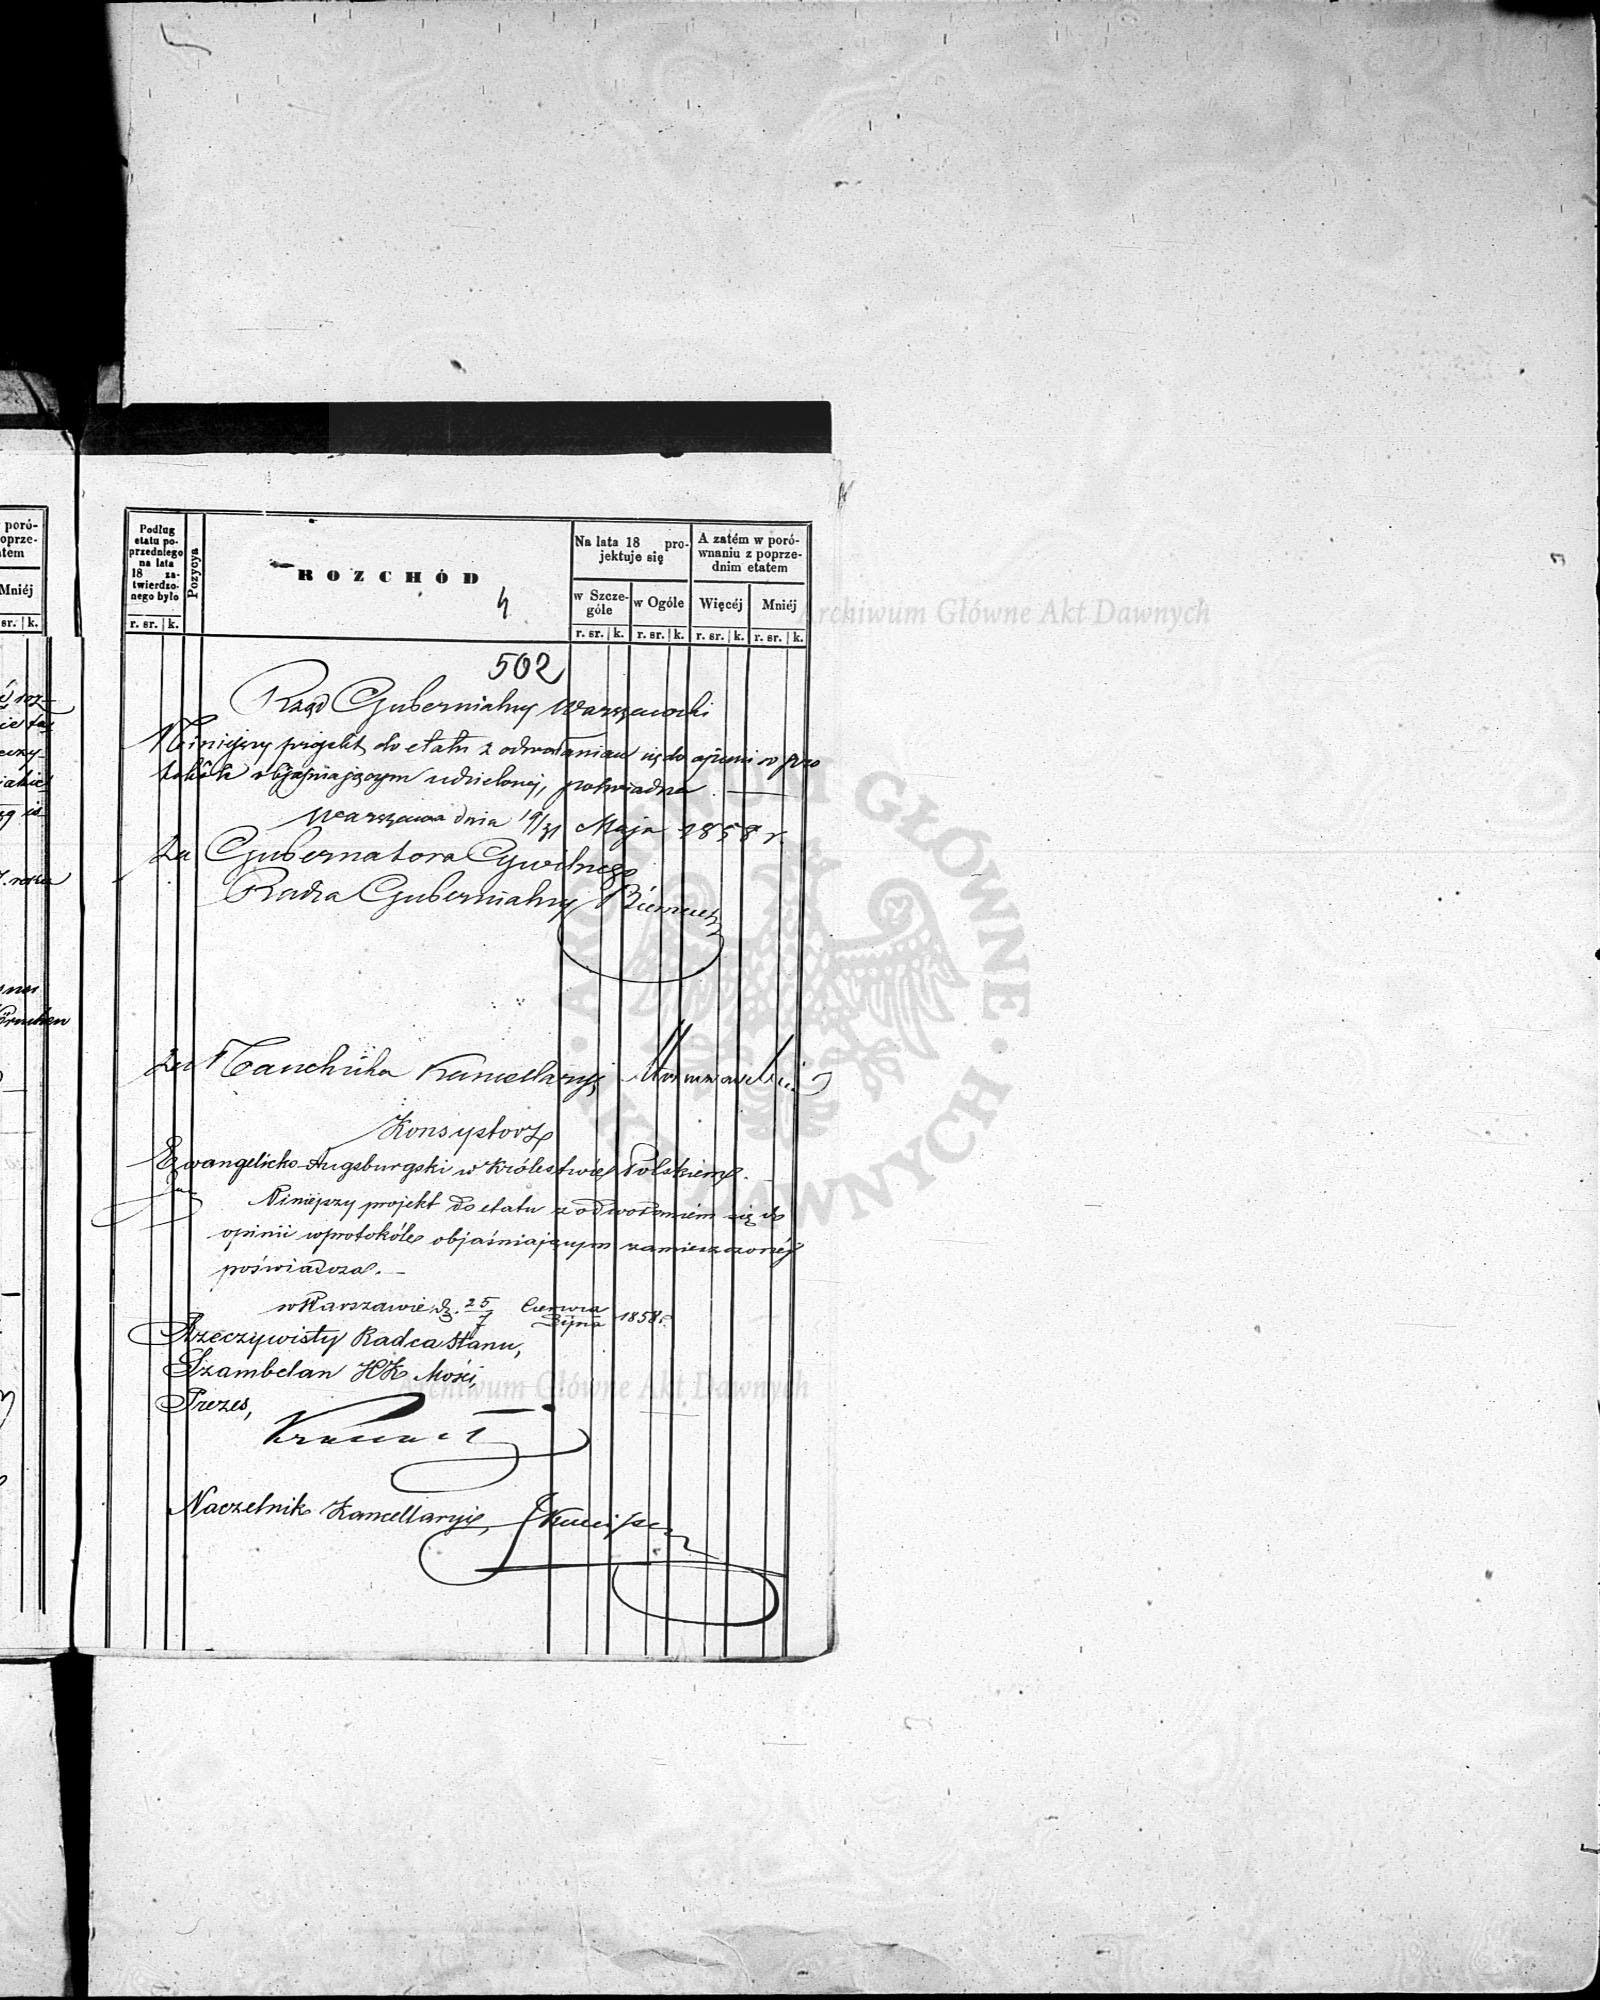 poró-
oprze-
tem
Mniéj
sr. k.
Podług
etatu po-
przedniego
na lata
18 za-
twierdzo-
nego było
r. sr. k.
Pozycya
ROZCHÓD
4
Na lata 18 pro-
jektuje się
w Szcze-
góle
r. sr. k.
w Ogóle
r. sr. k.
A zatém w poró-
wnaniu z poprze-
dnim etatem
Więcéj
r. sr. k.
Mniéj
r. sr. k.
502
Rząd Gubernialny Warszawski
Niniejszy projekt do etatu z odwołaniem się do opinii w pro
tokóle objaśniającym udzielonej, poświadcza.
Warszawa dnia 19/31 Maja 1858 r.
Za Gubernatora Cywilnego
Radca Gubernialny
Za Naczelnika Kancellaryi,
Konsystorz
Ewangelicko-Augsburgski w Królestwie Polskiem.
Niniejszy projekt do etatu z odwołaniem się do
opinii w protokóle objaśniającym zamieszczonéj
poświadcza.
w Warszawie, d. 25/7 Czerwca/Lipca 1858 r.
Rzeczywisty Radca Stanu,
Szambelan JK Mości,
Prezes,
Naczelnik Kancellaryi,
Archiwum Główne Akt Dawnych
Archiwum Główne Akt Dawnych
ARCHIWUM GŁÓWNE AKT DAWNYCH